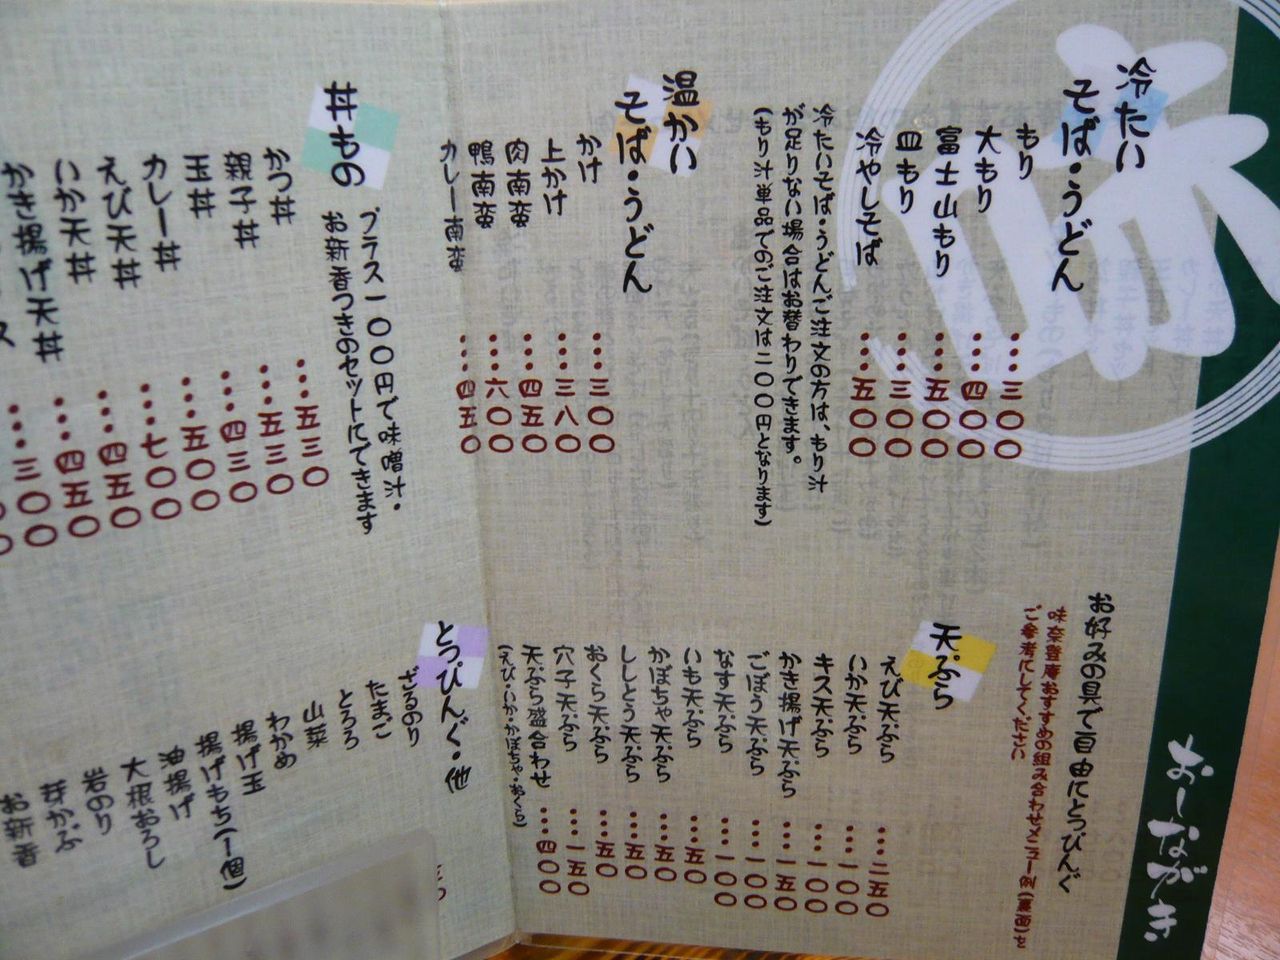 おしながき
冷たい
そば・うどん
もり…三〇〇
大もり…四〇〇
富士山もり…五〇〇
皿もり…三〇〇
冷やしそば…五〇〇
冷たいそば・うどんご注文の方は、もり汁
が足りない場合はお替わりできます。
(もり汁単品でのご注文は二〇〇円となります)
温かい
そば・うどん
かけ…三〇〇
上かけ…三八〇
肉南蛮…四五〇
鴨南蛮…六〇〇
カレー南蛮…四五〇
丼もの
プラス一〇〇円で味噌汁・
お新香つきのセットにできます
かつ丼…五三〇
親子丼…五三〇
玉丼…四三〇
カレー丼…五〇〇
えび天丼…七〇〇
いか天丼…四五〇
かき揚げ天丼…四五〇
お好みの具で自由にとっぴんぐ
味奈登庵おすすめの組み合わせメニュー例(裏面)を
ご参考にしてください
天ぷら
えび天ぷら…二五〇
いか天ぷら…一〇〇
キス天ぷら…一〇〇
かき揚げ天ぷら…一五〇
ごぼう天ぷら…一〇〇
なす天ぷら…一〇〇
いも天ぷら…五〇
かぼちゃ天ぷら…五〇
ししとう天ぷら…五〇
おくら天ぷら…五〇
穴子天ぷら…一五〇
天ぷら盛合わせ…四〇〇
(えび・いか・かぼちゃ・おくら)
とっぴんぐ・他
ざるのり
たまご
とろろ
山菜
わかめ
揚げ玉
揚げもち(一個)
油揚げ
大根おろし
岩のり
芽かぶ
お新香